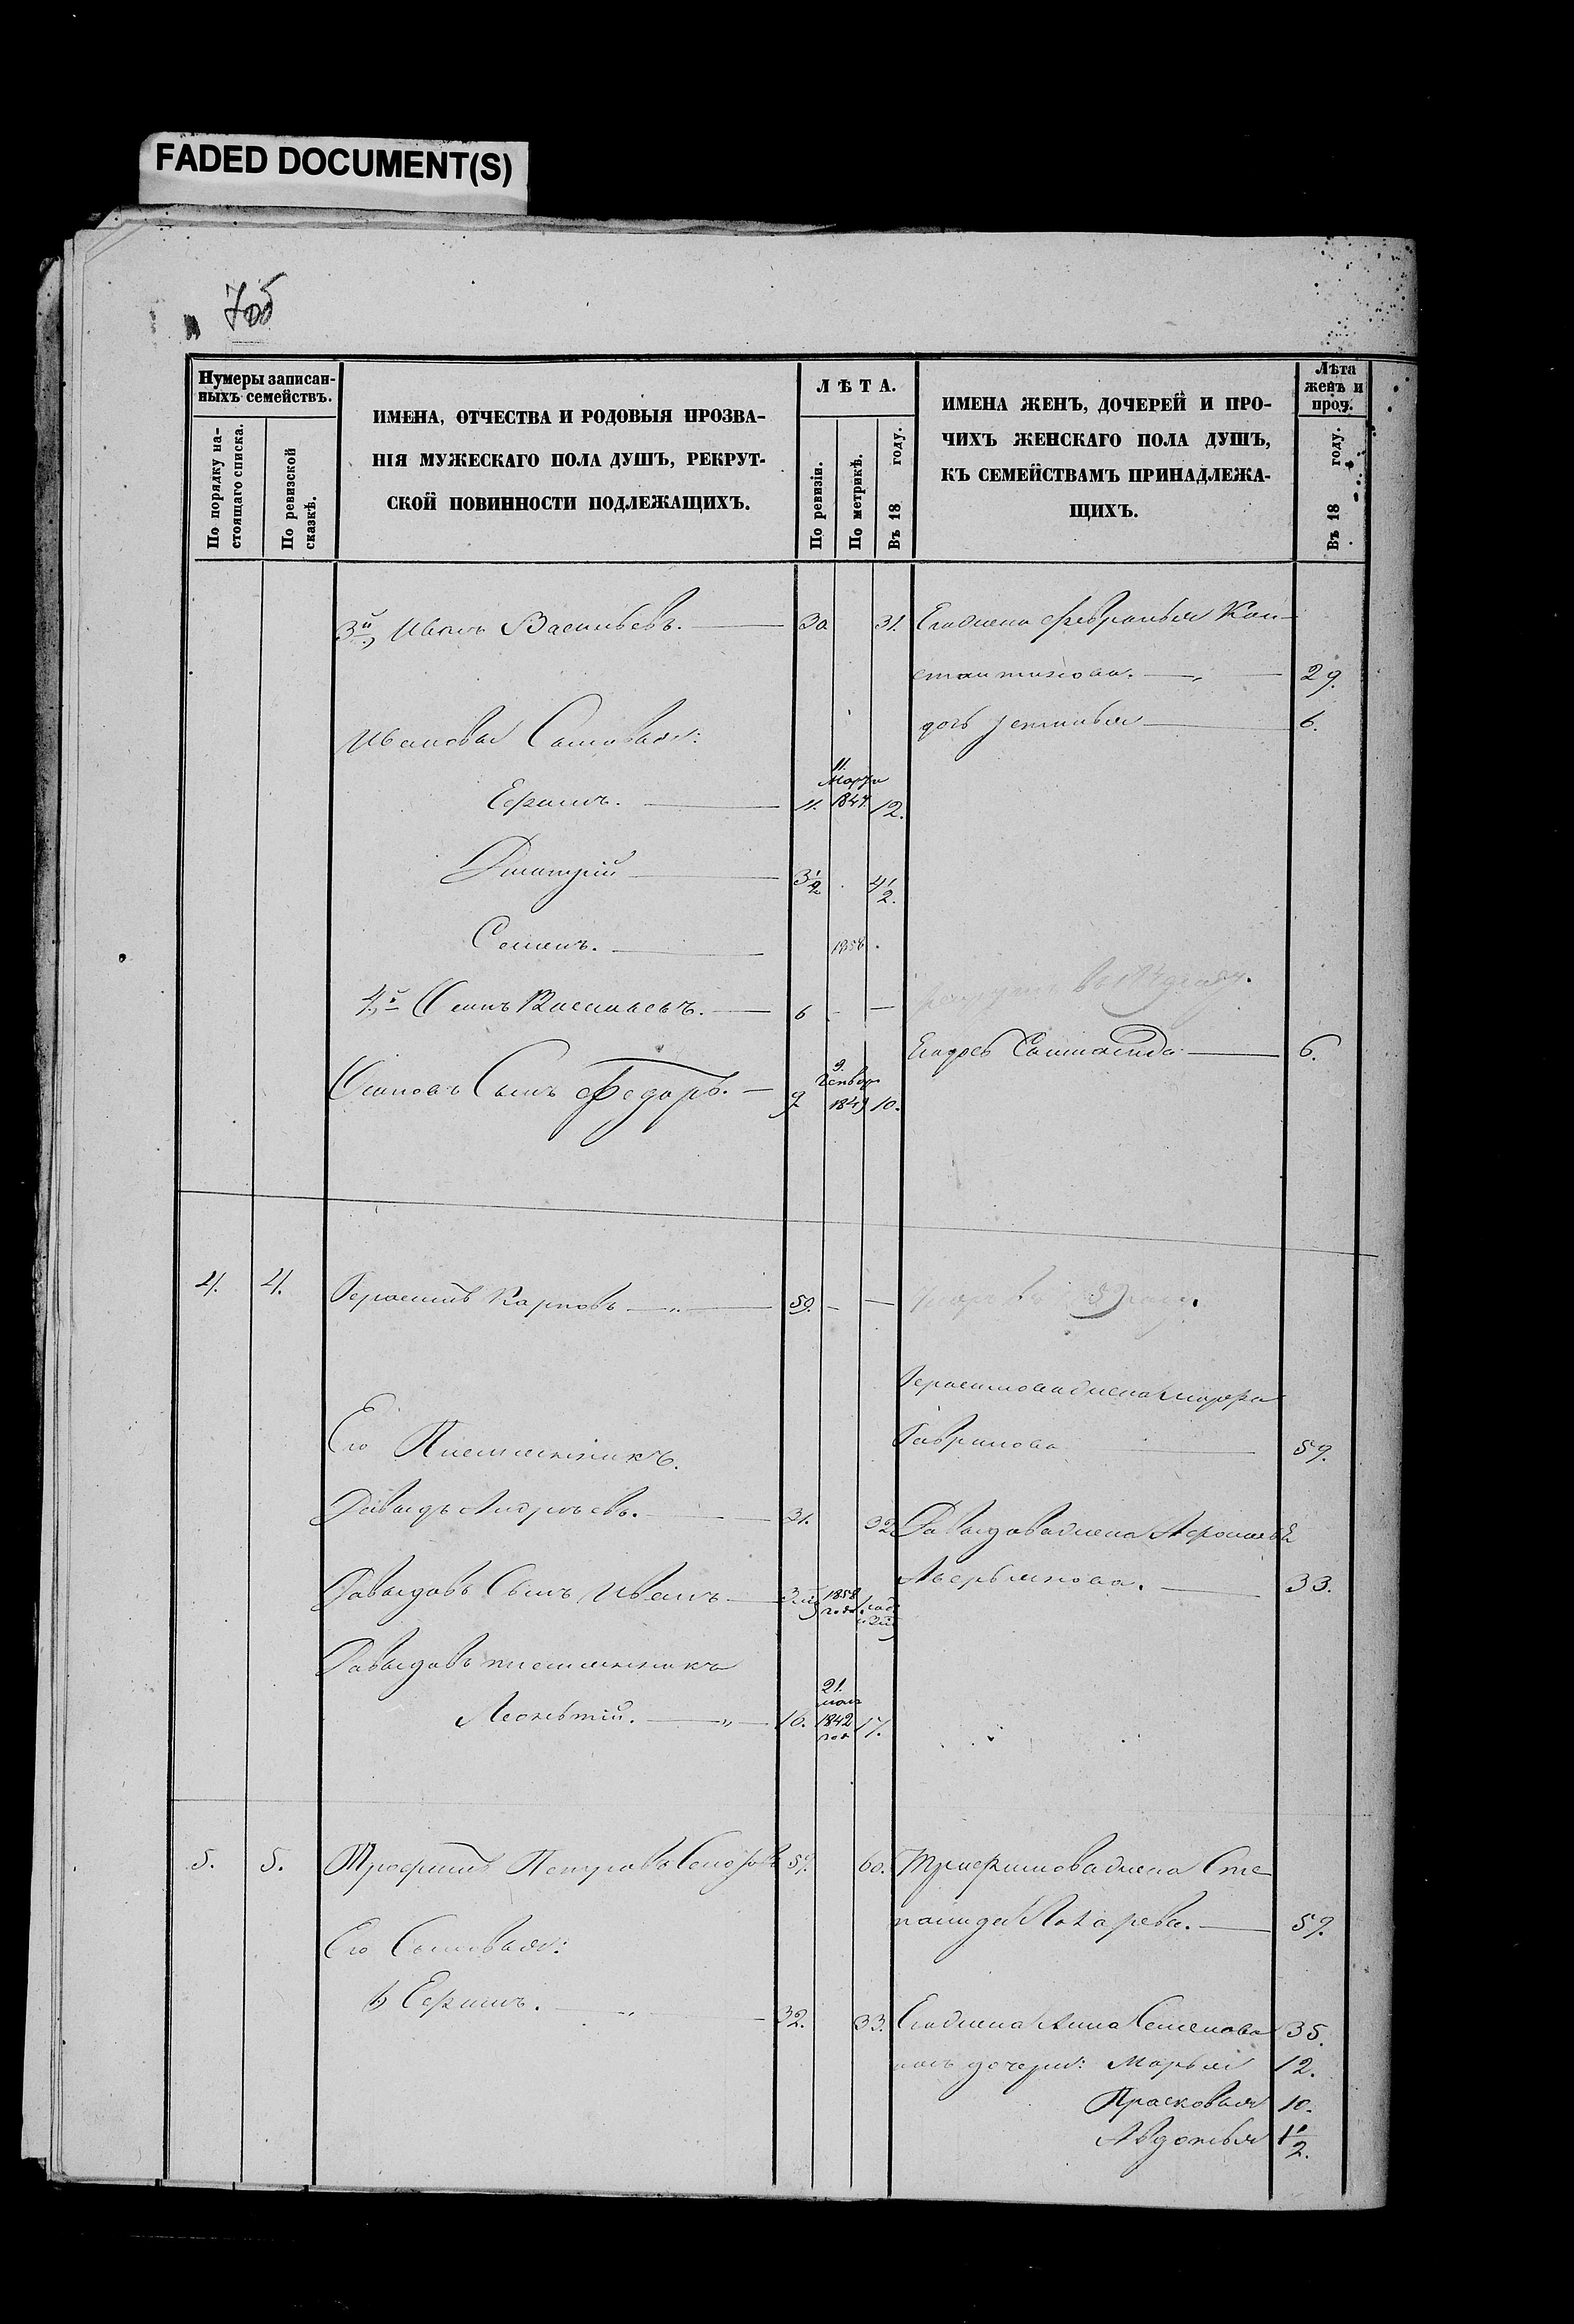 FADED DOCUMENT(S)
Нумеры записан-
ныхъ семействъ.
По порядку на-
стоящаго списка.
По ревизской
сказкѣ.
ИМЕНА, ОТЧЕСТВА И РОДОВЫЯ ПРОЗВА-
НІЯ МУЖЕСКАГО ПОЛА ДУШЪ, РЕКРУТ-
СКОЙ ПОВИННОСТИ ПОДЛЕЖАЩИХЪ.
ЛѢТА.
По ревизіи.
По метрикѣ.
Въ 18 году.
ИМЕНА ЖЕНЪ, ДОЧЕРЕЙ И ПРО-
ЧИХЪ ЖЕНСКАГО ПОЛА ДУШЪ,
КЪ СЕМЕЙСТВАМЪ ПРИНАДЛЕЖА-
ЩИХЪ.
Лѣта
женъ и
проч.
Въ 18 году.
3й, Иванъ Васильевъ. 30 31. Его жена Февранья Кон-
стантинова. 29.
дочь Устинья 6.
Ивановы Сыновья:
Ефимъ. 11. 11. Марта 1847 12.
Дмитрій 3 1/2 4 1/2.
Семенъ. 1858
4й Осипъ Васильевъ. 6
Его дочь 6.
Осиповъ Сынъ Федоръ. 9 9. Генвар 1849 10.
4. 4. Герасимъ Карповъ 59.
Герасимова жена Марфа
Гаврилова 59.
Его Племянникъ.
Давыдъ Андреевъ. 31. 32 Давыдова жена
Аверьянова. 33.
Давыдовъ Сынъ Иванъ 1858 года
Давыдовъ племянникъ
Леонтій. 16. 21. мая 1842 год 17.
5. 5. Трофимъ Петровъ 59. 60. Трофимова жена Сте
панида Лазарева. 59.
Его Сыновья:
1, Ефимъ. 32. 33. Его жена Анна Семенова 35.
дочери: Марья 12.
Прасковья 10.
Авдотья 1 1/2.